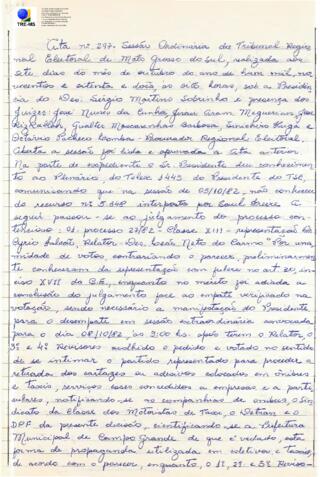 TRE-MS
Ata nº 297. Sessão Ordinária do Tribunal Regio
nal Eleitoral de Mato Grosso do Sul, realizada aos
sete dias do mês de outubro do ano de hum mil, no
vecentos e oitenta e dois, às oito horas, sob a Presidên
cia do Des. Sérgio Martins Sobrinho e presença dos
Juizes: José Nunes da Cunha, Jesus
Rizkallah, Gualter Mascarenhas Barbosa,
Octávio Pacheco Procurador Regional Eleitoral.
Aberta a sessão foi lida e aprovada a Ata anterior.
Na parte de expediente o Sr. Presidente deu conhecimento
ao Plenário, do Telex 1443 do Presidente do TSE,
comunicando que na sessão de 05/10/82, não conheceu
do recurso nº 5.648 interposto por A
seguir passou-se ao julgamento do processo con-
tencioso: 01. processo 27/82 - Classe XIII - representação
Relator - Des. do Carmo - Por una
nimidade de votos, contrariando o parecer, preliminarmen
te conheceram da representação com fulcro no art. 30, in
ciso XVII do C.E., enquanto no mérito foi adiada a
conclusão do julgamento face ao empate verificado na
votação, sendo necessário a manifestação do Presidente
para o desempate em sessão extraordinária convocada
para o dia 08/10/82, às 9:00 hs. após terem o Relator, o
3º e 4º Revisores acolhido o pedido e votado no sentido
de se intimar o partido representado para proceder a
retirada dos cartazes ou adesivos colocados em ônibus
e taxis, serviços esses concedidos a empresas e a parti
culares, notificando-se as companhias de ônibus, o Sin
dicato da Classe dos Motoristas de Taxis, o Detran e o
DPF da presente decisão, cientificando-se a Prefeitura
Municipal de Campo Grande de que é vedado, esta
forma de propaganda utilizada em coletivos e taxis,
de acordo com o parecer, enquanto, o 1º, 2º e 5º Reviso-